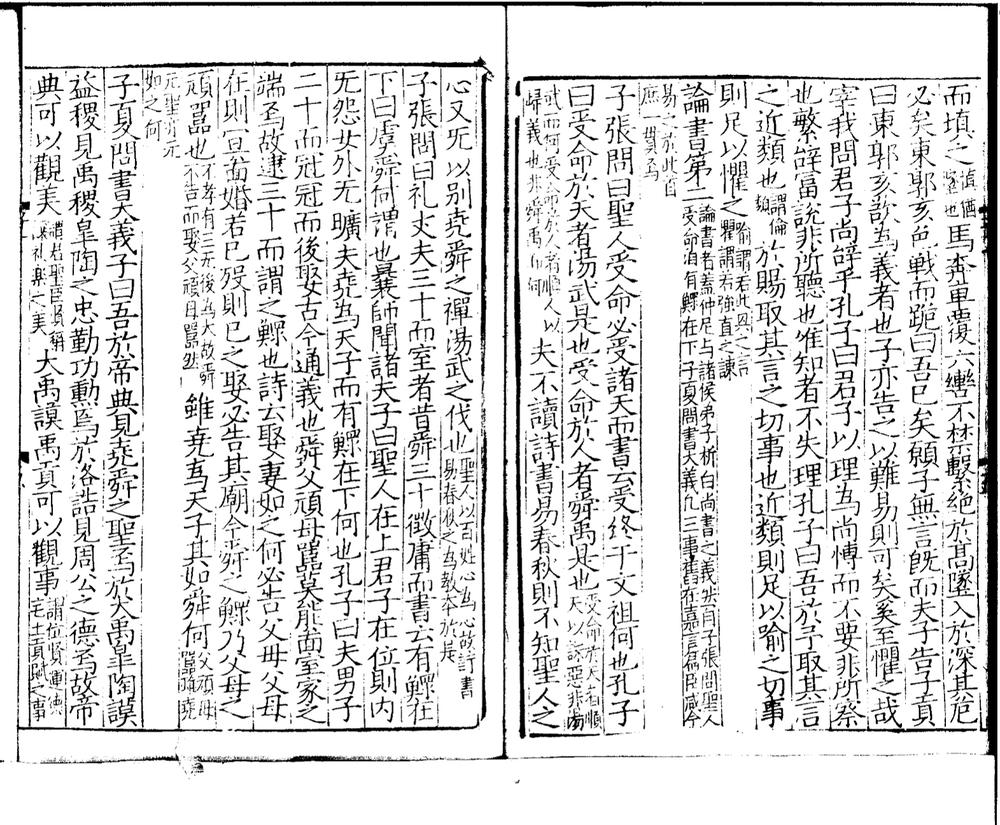 而填之填猶塞也馬奔車覆六轡不禁繫絶於髙墜入於深其危
必矣東郭亥色戰而跪曰吾已矣願子無言既而夫子告子貢
曰東郭亥欲為義者也子亦告之以難易則可矣奚至懼之哉
宰我問君子尚辭乎孔子曰君子以理為尚博而不要非所察
也繁辭富說非所聽也唯知者不失理孔子曰吾於予取其言
之近類也謂倫類於賜取其言之切事也近類則足以喻之切事
則足以懼之喻謂若此與之言懼謂若強直之諫
論書第二論書者蓋仲尼与諸侯弟子析白尚書之義然自子張問聖人受命洎有鰥在下子夏問書大義凡三事舊在嘉言篇臣咸今
易之於此自庶一貫焉
子張問曰聖人受命必受諸天而書云受終于文祖何也孔子
曰受命於天者湯武是也受命於人者舜禹是也受命於天者順天以誅惡非湯
武而何受命於人者順人以歸義也非舜禹而何夫不讀詩書易春秋則不知聖人之
心又旡以别堯舜之禪湯武之伐也聖人以百姓心為心故詩書易春秋之為教本於是
子張問曰礼丈夫三十而室者昔舜三十徵庸而書云有鰥在
下曰虞舜何謂也曩師聞諸夫子曰聖人在上君子在位則内
旡怨女外旡曠夫堯為天子而有鰥在下何也孔子曰夫男子
二十而冠冠而後娶古今通義也舜父頑母嚚莫能面室家之
端焉故逮三十而謂之鰥也詩云娶妻如之何必告父母父母
在則宜啚婚若已殁則已之娶必告其廟今舜之鰥乃父母之
頑嚚也不孝有三旡後為大故舜不告而娶父頑母嚚然雖堯為天子其如舜何父頑母嚚雖堯
元聖亦旡如之何
子夏問書大義子曰吾於帝典見堯舜之聖焉於大禹皐陶謨
益稷見禹稷皐陶之忠勤功勲焉於洛誥見周公之德焉故帝
典可以觀美謂君聖臣賢稱其礼樂之美大禹謨禹貢可以觀事謂位賢運德宅土貢賦之事